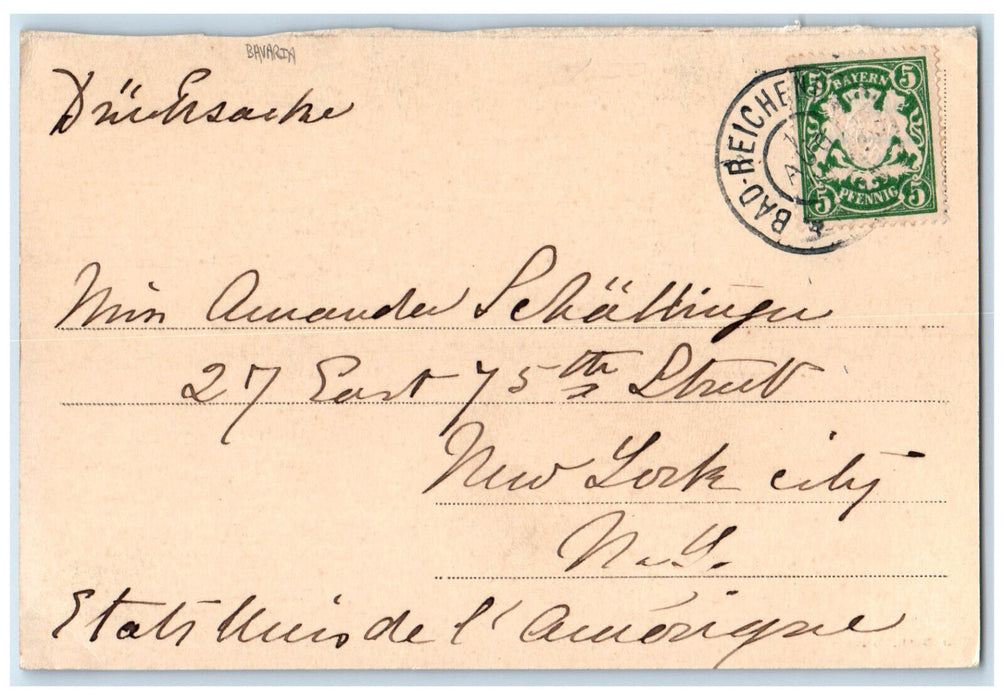 BAVARIA
Drucksache
5 BAYERN 5
BAD-REICHEN
5 PFENNIG 5
Miss Amanda Schällinger
27 East 75th Street
New York city
N.Y.
Etats Unis de l'Amérique